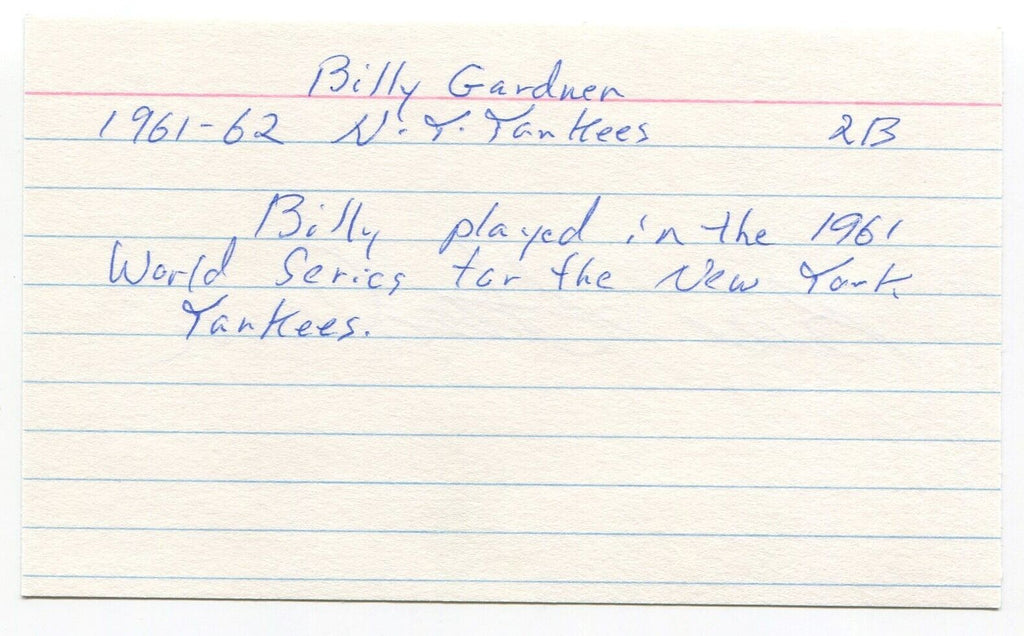 Billy Gardner
1961-62 N.Y. Yankees 2B
Billy played in the 1961
World Series for the New York
Yankees.